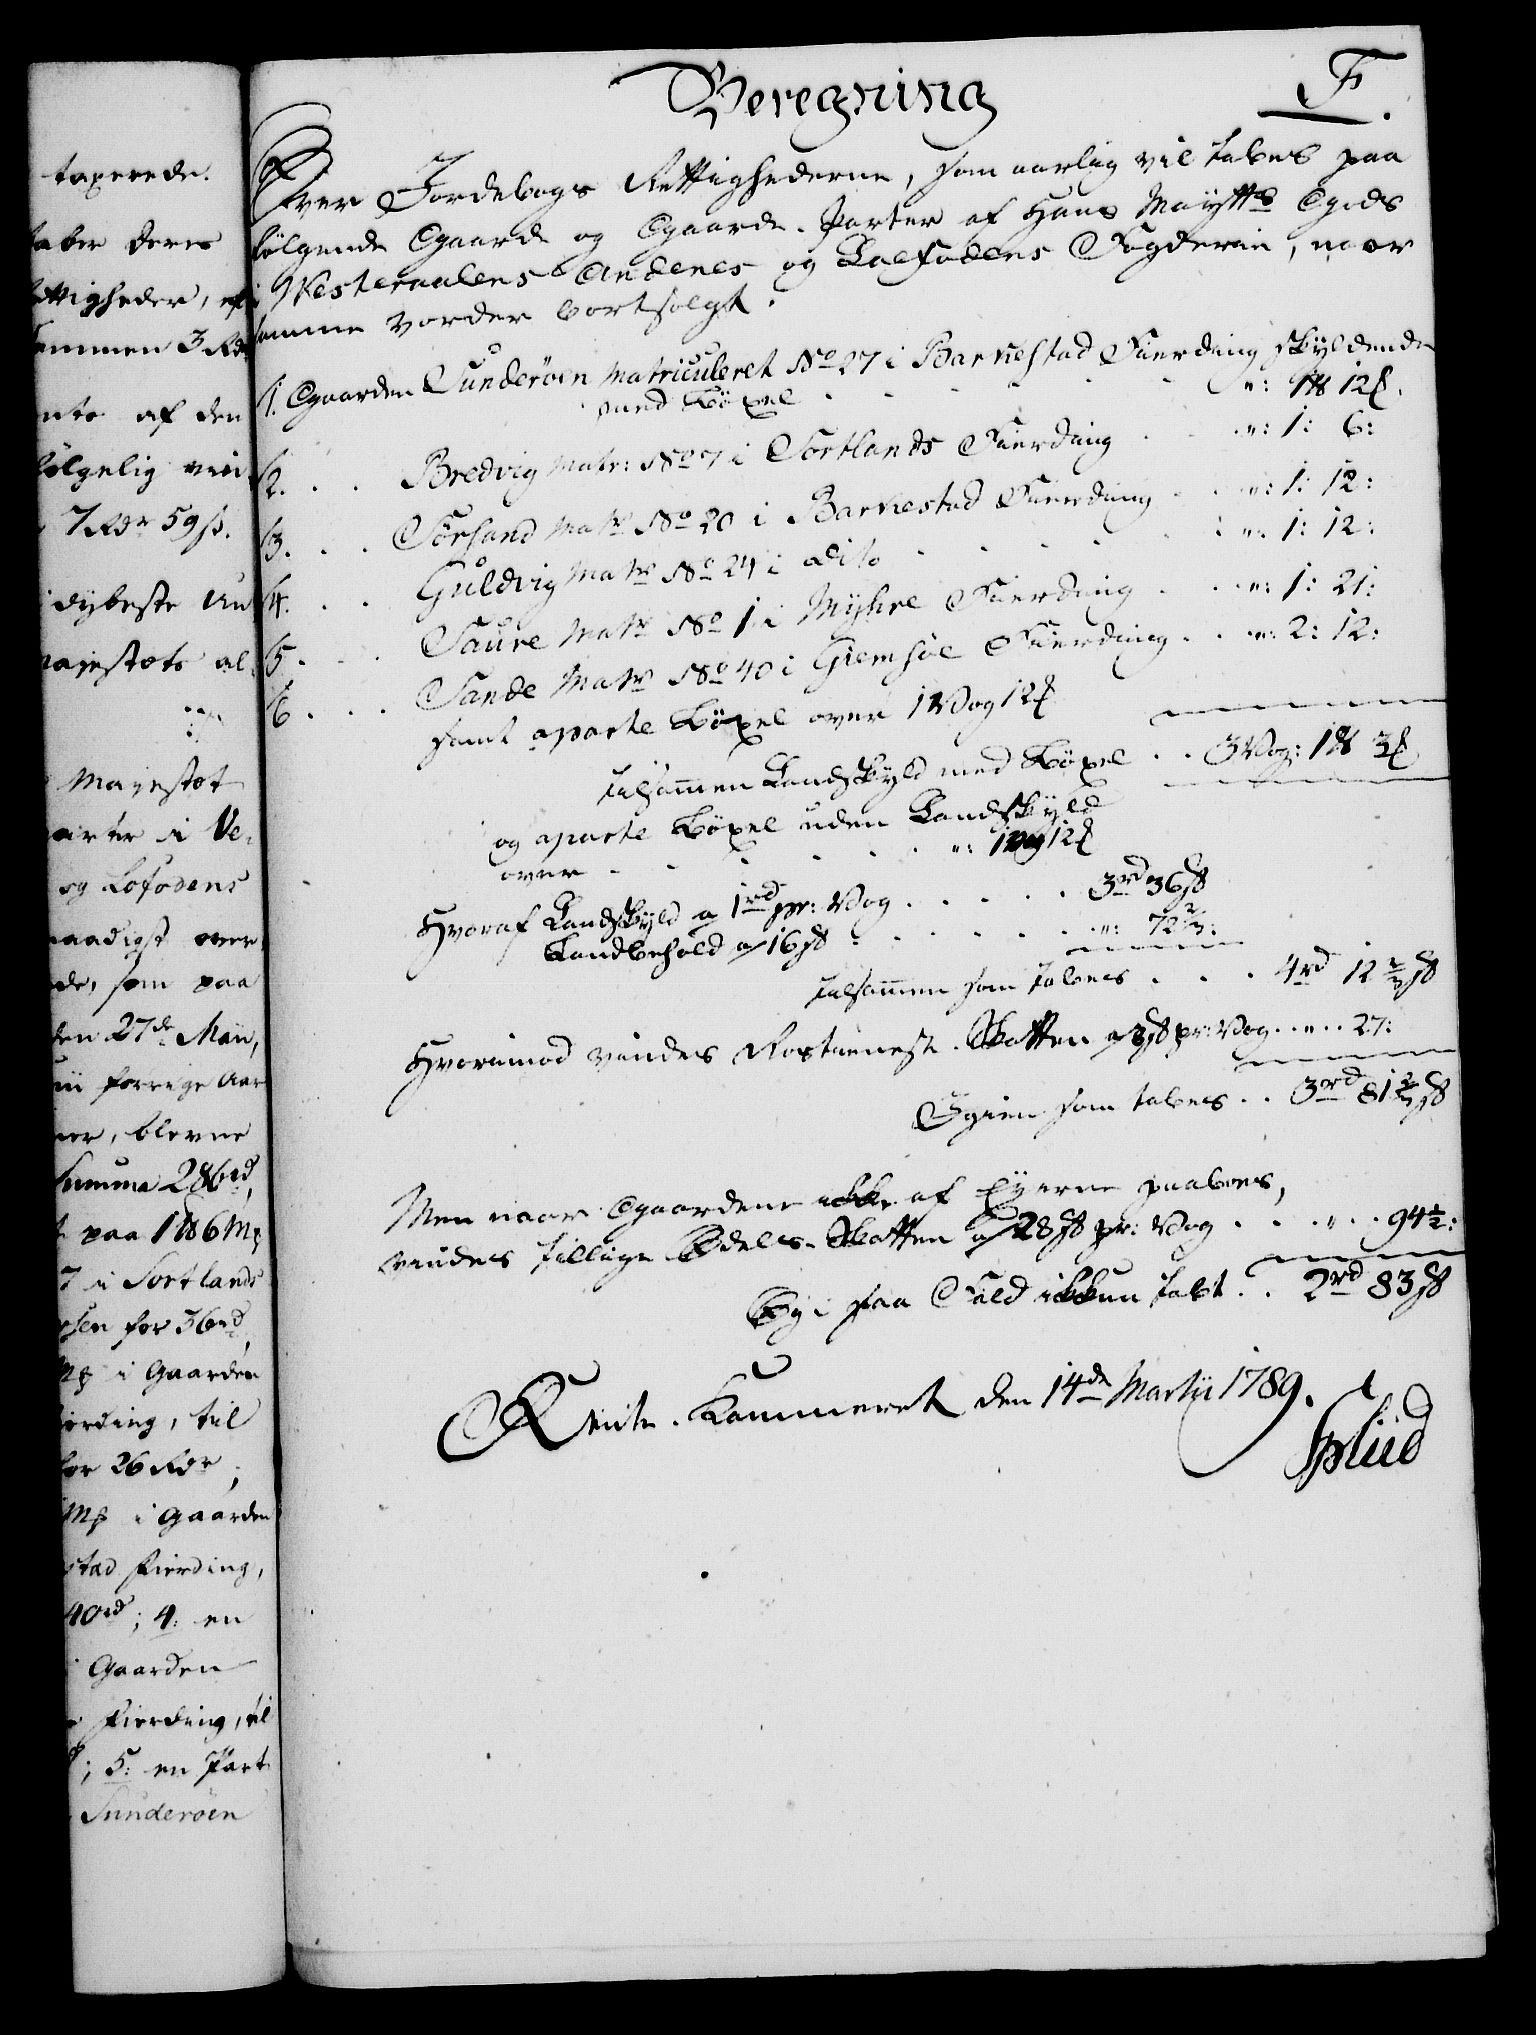 taxerede.
taber deres
ettigheder, ef
sammen 3 Rd
ente af den
følgelig vin
7 Rdr 59 s.
i dybeste Un
Majestets al
Majestet
Parter i Ve-
og Lofodens
naadigst over
de, som paa
den 27de Maii,
forrige Aar
er, blevne
Summa 286rd,
paa 1 Pd 6 Mk
7 i Sortlands
sen for 36rd,
Mk i Gaarden
Fierding, til
for 26 Rdr;
Mk i Gaarden
stad Fierding,
40rd; 4: en
i Gaarden
Fierding, til
; 5: en Part
Sunderöen
Beregning F.
Over Jordebogs Rettighederne, som aarlig vil tabes paa
følgende Gaarde og Gaarde-Parter af Hans Maÿtts Gods
i Westeraalens Andenes og Lofodens Fogderie, naar
samme vorder bortsolgt.
1. Gaarden Sunderöen Matriculeret No 27 i Barkestad Fierding skyldende
med Böxel . . . ": 1 Pd 12 Mk.
2. . . Bredvig Matr: No 7 i Sortlands Fierding . . ": 1: 6:
3. . . Törsand Matr No 20 i Barkestad Fierding . . ": 1: 12:
4. . . Guldvig Matr No 24 i dito . . . . ": 1: 12:
5. . . Saure Matr No 1 i Myhre Fierding . . ": 1: 21:
6. . . Sande Matr No 40 i Giemsöe Fierding . . ": 2: 12:
samt aparte Böxel over 1 Vog 12 Mk
Tilsammen Landskyld med Böxel . . 3 Vog: 1 Pd 3 Mk
og aparte Böxel uden Landskyld
over . . . . . ": 1 Vog 12 Mk
Hvoraf Landskyld a 1rd pr: Vog . . . . . 3rd 36 s
Landbehold a 16 s . . . . . ": 72 2/3:
Tilsammen som tabes . . . 4rd 12 2/3 s
Hvorimod vindes Rostieneste-Skatten a 8 s pr: Vog . . " . . 27:
Igien som tabes . . 3rd 81 2/3 s
Men naar Gaardene ikke af Eyerne paaboes,
vindes tillige Odels-Skatten a 28 s pr: Vog . . . " . . 94 1/2:
Og i saa Fald ikkun tabt . . 2rd 83 s
Rente-Kammeret den 14de Martii 1789.